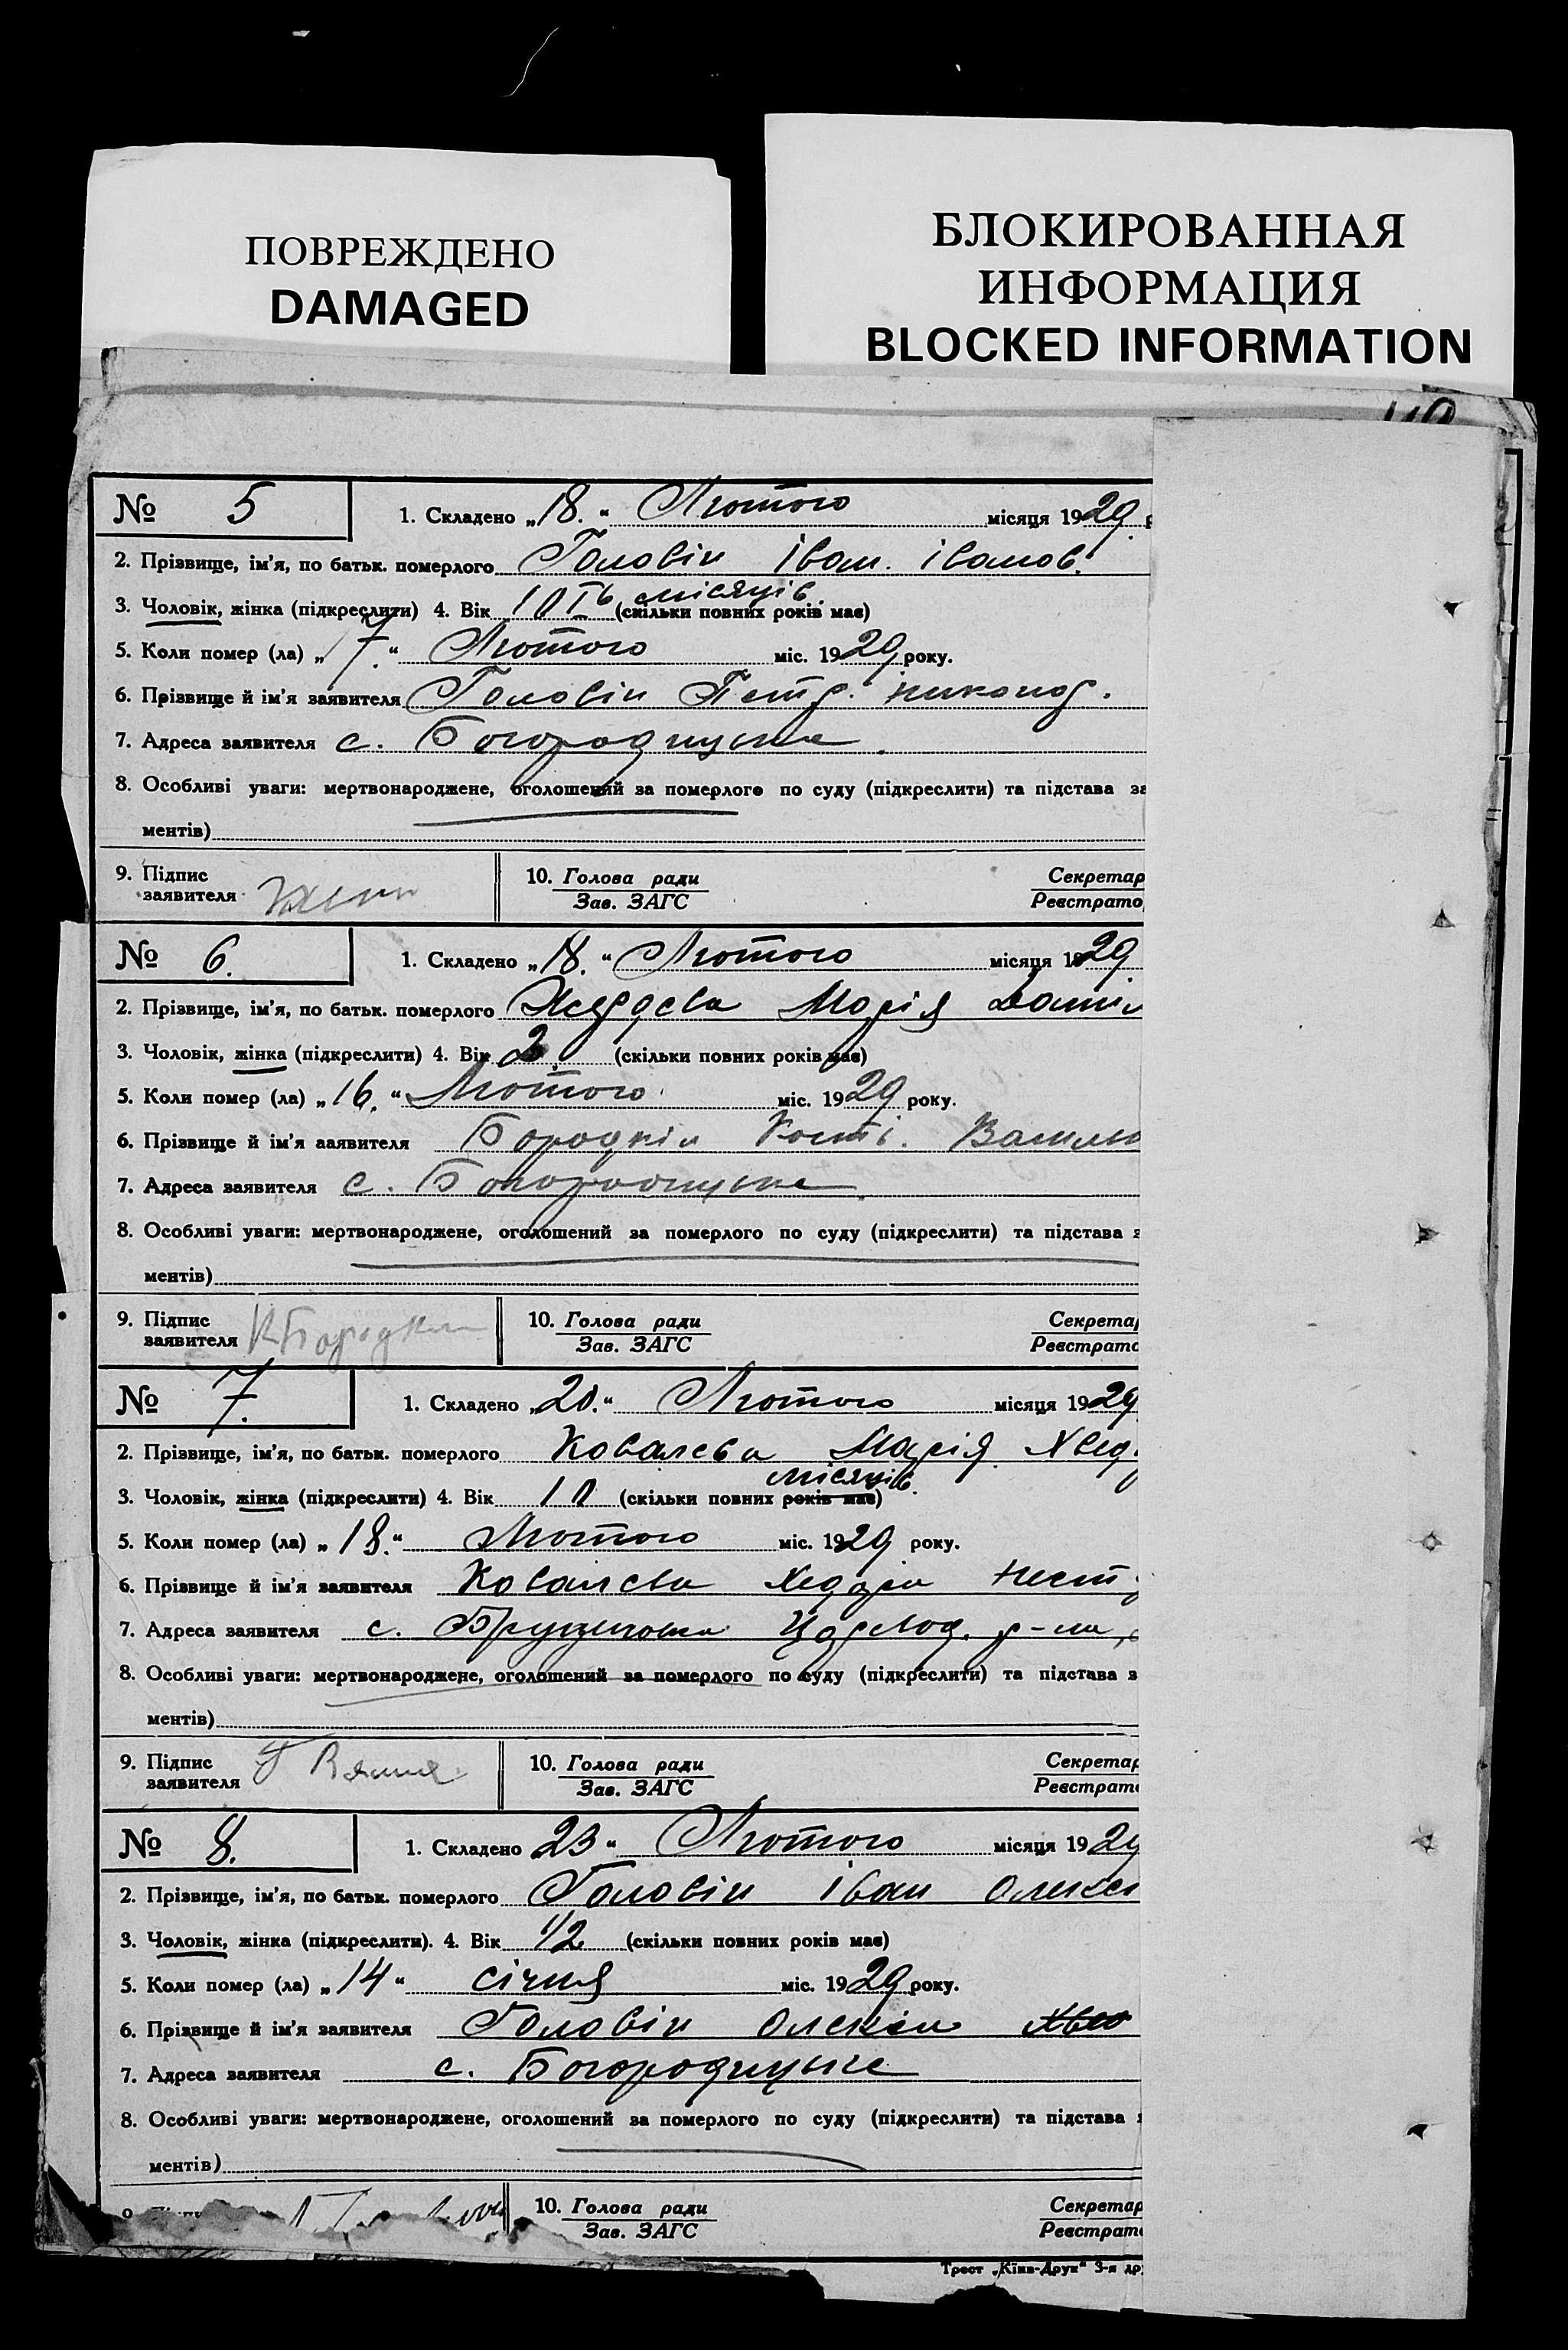 ПОВРЕЖДЕНО
DAMAGED
БЛОКИРОВАННАЯ
ИНФОРМАЦИЯ
BLOCKED INFORMATION
№ 5 1. Складено „18.“ Лютого місяця 1929
2. Прізвище, ім'я, по батьк. померлого Головін Іван. Іванов.
3. Чоловік, жінка (підкреслити) 4. Вік 10 місяців. (скільки повних років має)
5. Коли помер (ла) „7.“ Лютого міс. 1929 року.
6. Прізвище й ім'я заявителя Головін Петр. Никонор.
7. Адреса заявителя с. Богородицьке.
8. Особливі уваги: мертвонароджене, оголошений за померлого по суду (підкреслити) та підстава
ментів)
9. Підпис 10. Голова ради Секретар
заявителя Зав. ЗАГС Реєстрато
№ 6. 1. Складено „18.“ Лютого місяця 1929
2. Прізвище, ім'я, по батьк. померлого Марія
3. Чоловік, жінка (підкреслити) 4. Вік 2 (скільки повних років має)
5. Коли помер (ла) „16.“ Лютого міс. 1929 року.
6. Прізвище й ім'я заявителя Бородкін Вол
7. Адреса заявителя с. Богородицьке
8. Особливі уваги: мертвонароджене, оголошений за померлого по суду (підкреслити) та підстава
ментів)
9. Підпис К Бородкин 10. Голова ради Секретар
заявителя Зав. ЗАГС Реєстрато
№ 7. 1. Складено „20.“ Лютого місяця 1929
2. Прізвище, ім'я, по батьк. померлого Ковалєва Марія Хвед
3. Чоловік, жінка (підкреслити) 4. Вік 10 (скільки повних років має) місяців.
5. Коли помер (ла) „18.“ Лютого міс. 1929 року.
6. Прізвище й ім'я заявителя Ковалєва Нест
7. Адреса заявителя с. р-на
8. Особливі уваги: мертвонароджене, оголошений за померлого по суду (підкреслити) та підстава з
ментів)
9. Підпис 10. Голова ради Секретар
заявителя Зав. ЗАГС Реєстрато
№ 8. 1. Складено „23“ Лютого місяця 1929
2. Прізвище, ім'я, по батьк. померлого Головін Іван Олекс
3. Чоловік, жінка (підкреслити). 4. Вік 1/2 (скільки повних років має)
5. Коли помер (ла) „14“ січня міс. 1929 року.
6. Прізвище й ім'я заявителя Головін
7. Адреса заявителя с. Богородицьке
8. Особливі уваги: мертвонароджене, оголошений за померлого по суду (підкреслити) та підстава
ментів)
10. Голова ради Секретар
Зав. ЗАГС Реєстрато
Трест „Київ-Друк“ 3-я др